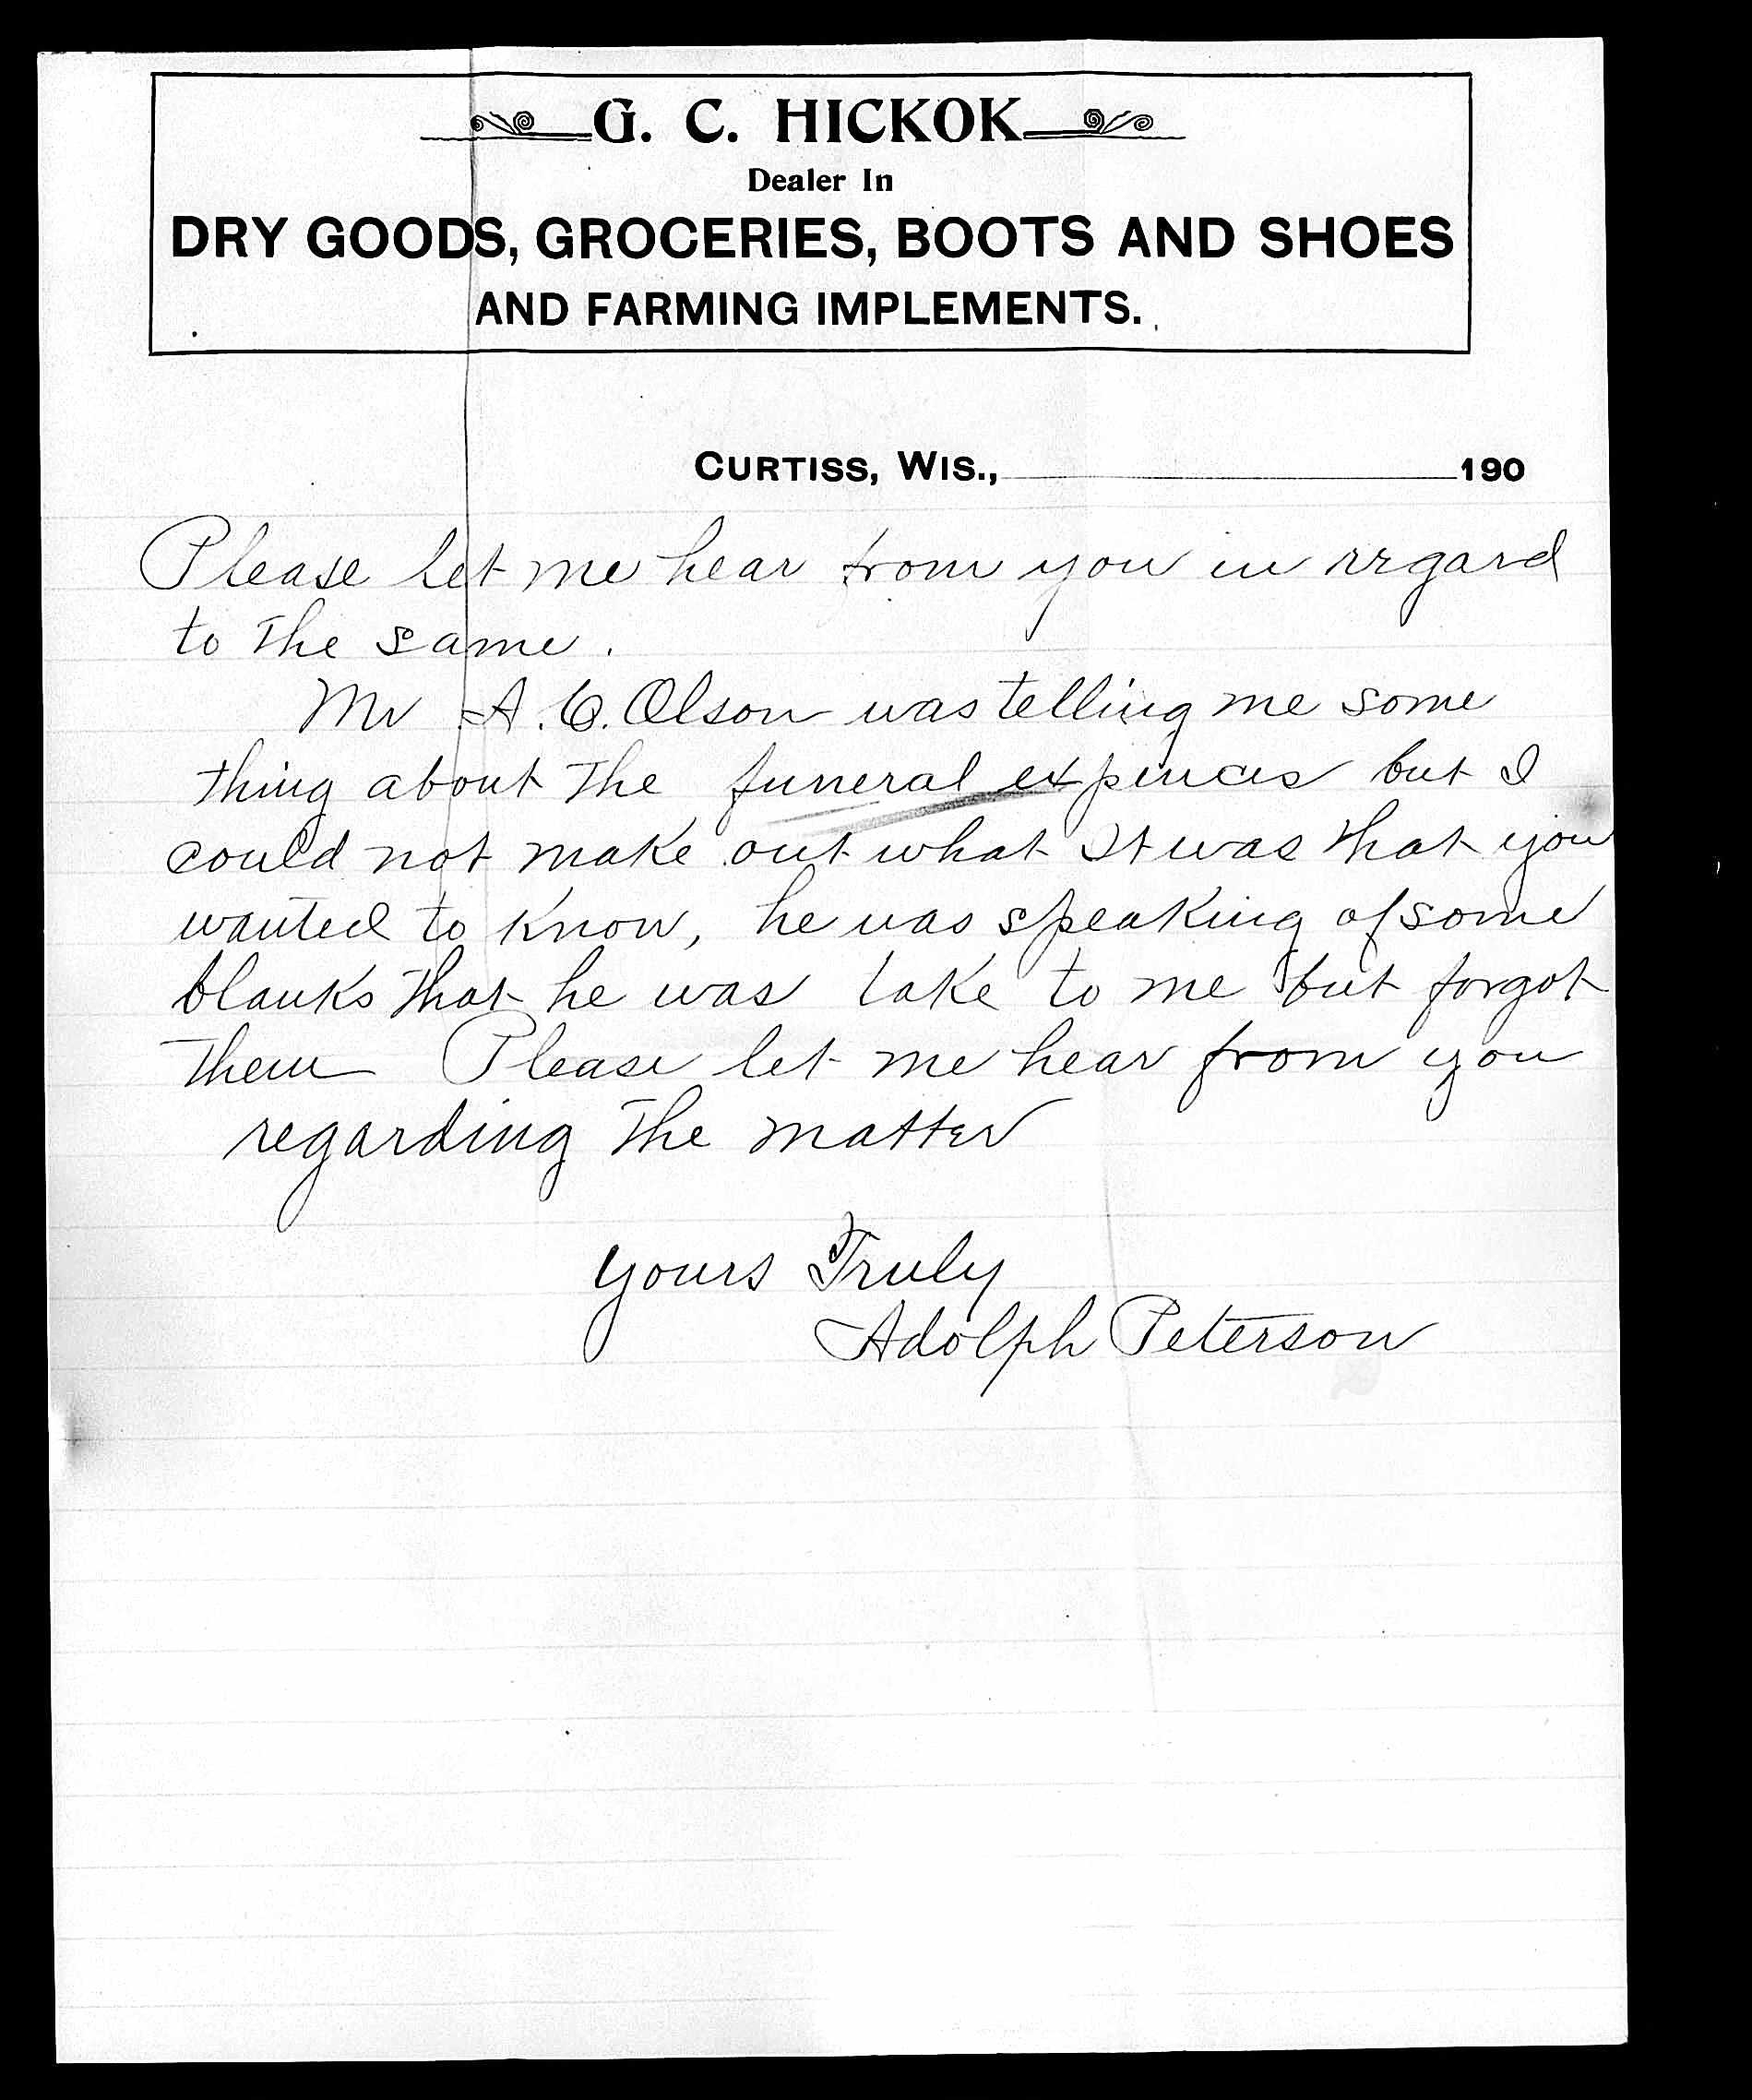 G. C. HICKOK
Dealer In
DRY GOODS, GROCERIES, BOOTS AND SHOES
AND FARMING IMPLEMENTS.
CURTISS, WIS., 190
Please let me hear from you in regard
to the same.
Mr A. C. Olson was telling me some
thing about the funeral expences but I
could not make out what It was that you
wanted to know, he was speaking of some
blanks that he was take to me but forgot
them Please let me hear from you
regarding the matter
yours Truly
Adolph Peterson